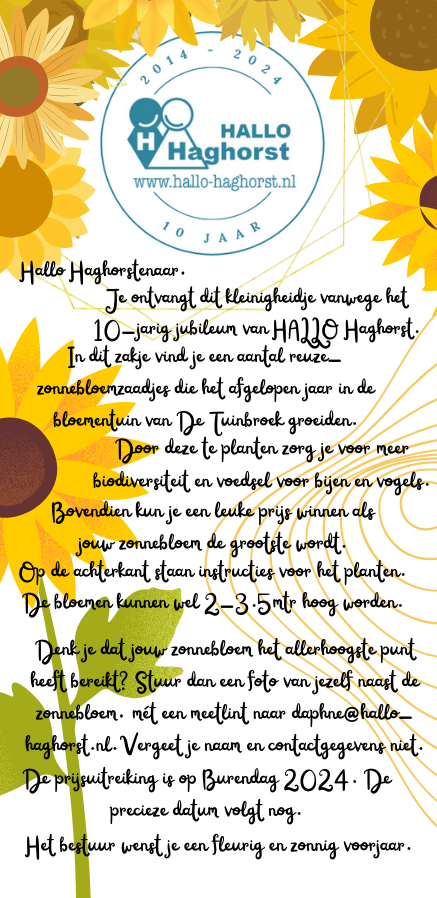 2014 - 2024
H
HALLO
Haghorst
www.hallo-haghorst.nl
10 JAAR
Hallo Haghorstenaar.
Je ontvangt dit kleinigheidje vanwege het
10-jarig jubileum van HALLO Haghorst.
In dit zakje vind je een aantal reuze-
zonnebloemzaadjes die het afgelopen jaar in de
bloementuin van De Tuinbroek groeiden.
Door deze te planten zorg je voor meer
biodiversiteit en voedsel voor bijen en vogels.
Bovendien kun je een leuke prijs winnen als
jouw zonnebloem de grootste wordt.
Op de achterkant staan instructies voor het planten.
De bloemen kunnen wel 2-3.5mtr hoog worden.
Denk je dat jouw zonnebloem het allerhoogste punt
heeft bereikt? Stuur dan een foto van jezelf naast de
zonnebloem. mét een meetlint naar daphne@hallo-
haghorst.nl. Vergeet je naam en contactgegevens niet.
De prijsuitreiking is op Burendag 2024. De
precieze datum volgt nog.
Het bestuur wenst je een fleurig en zonnig voorjaar.